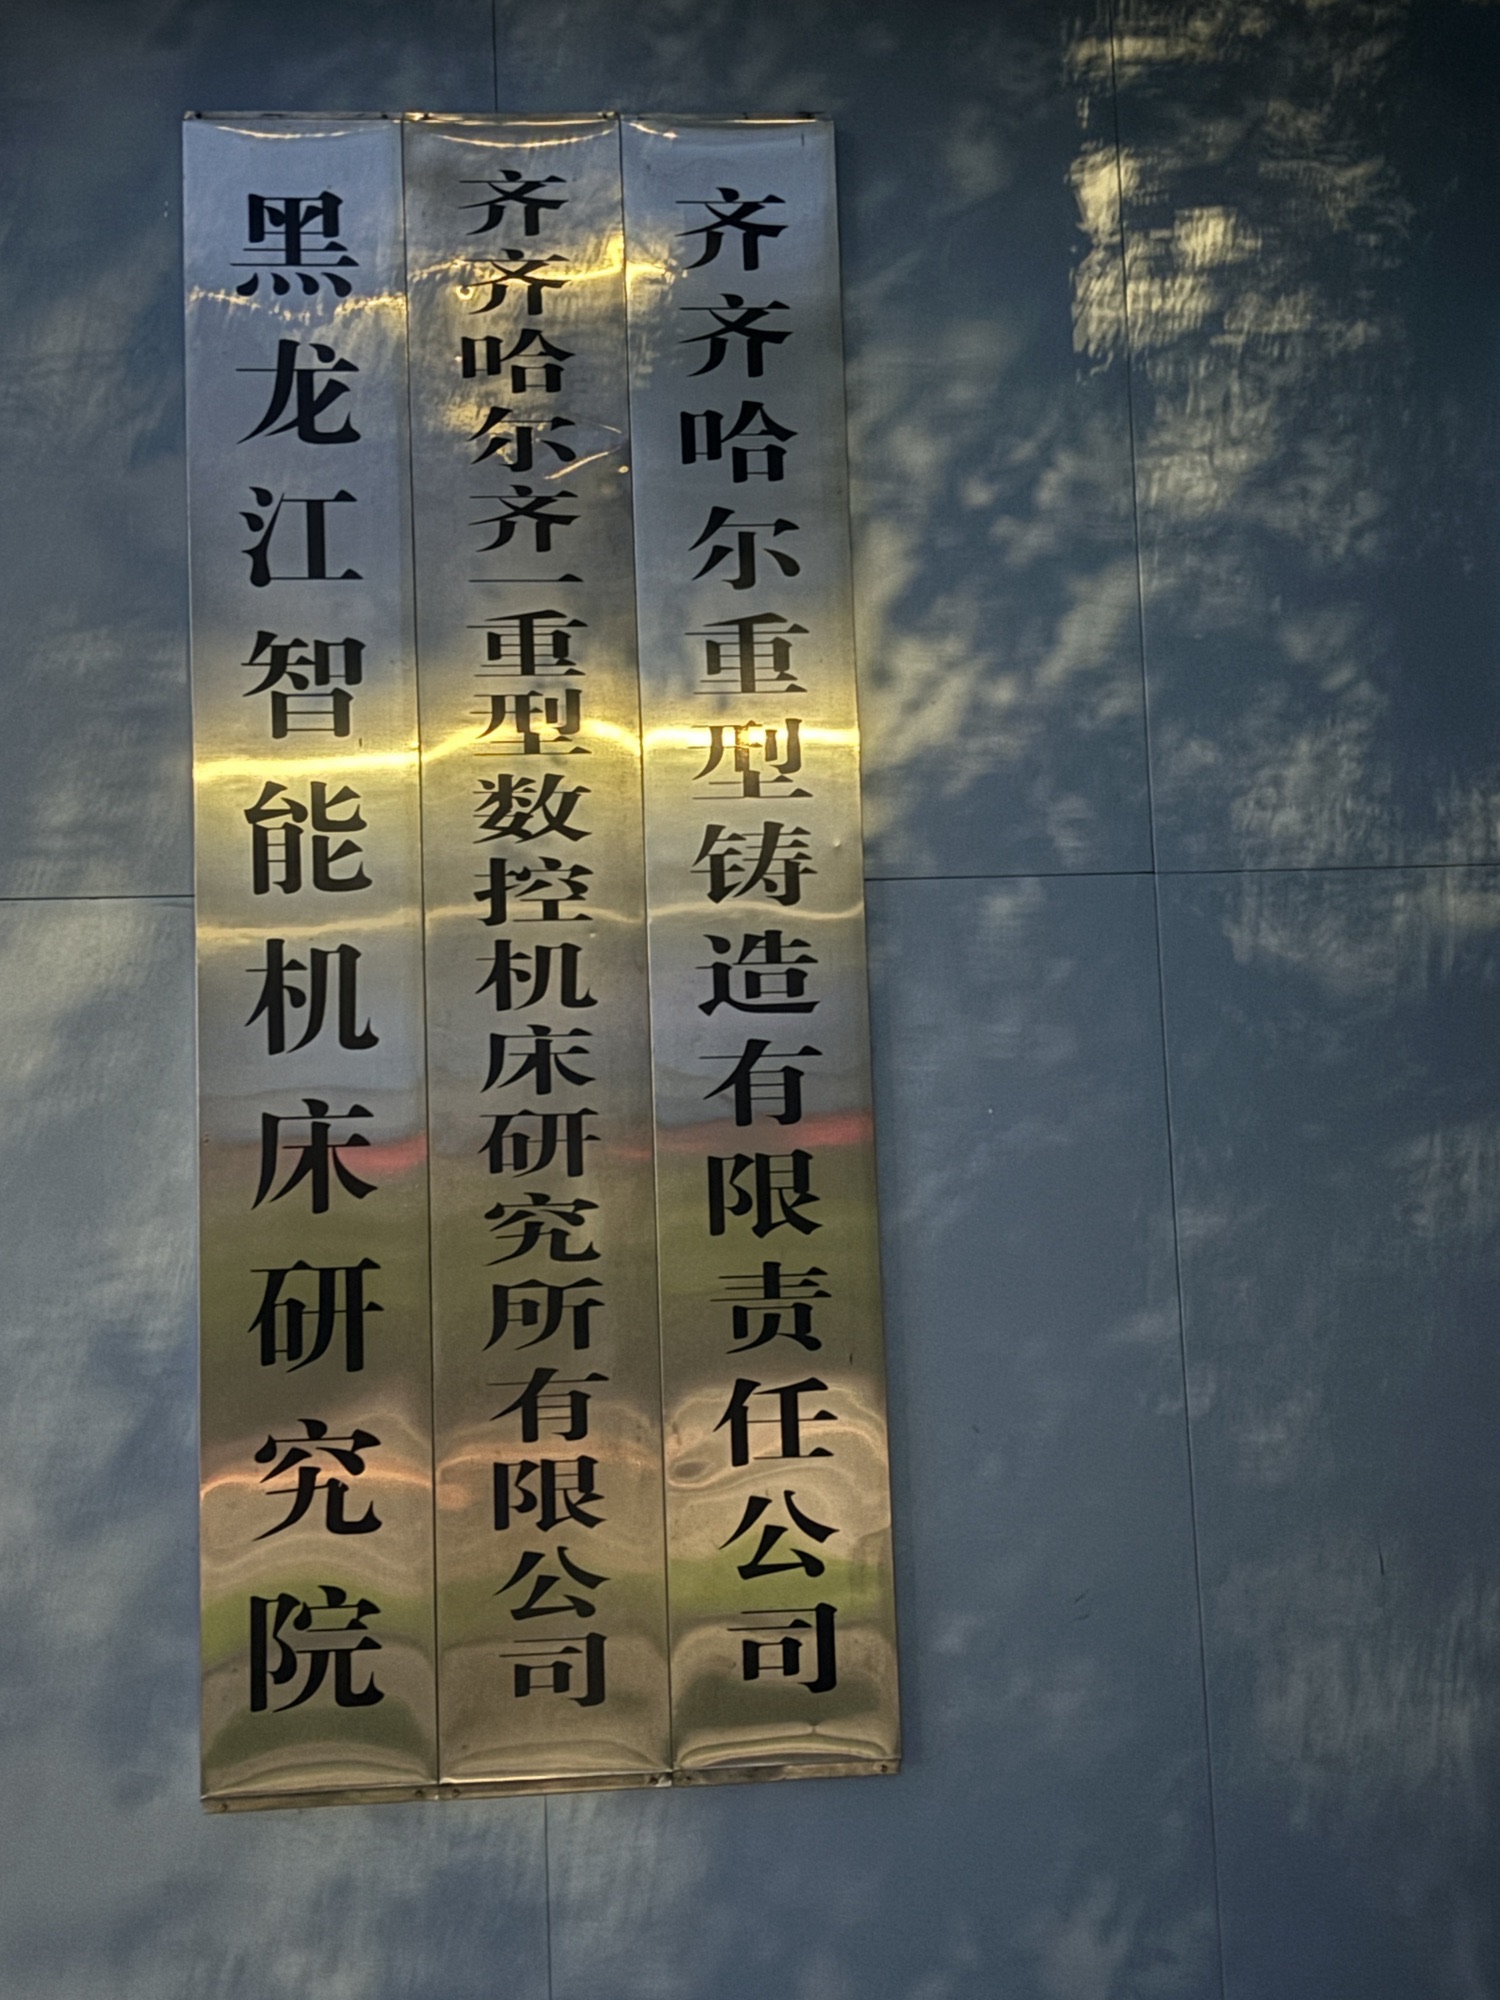 黑龙江智能机床研究院
齐齐哈尔齐一重型数控机床研究所有限公司
齐齐哈尔重型铸造有限责任公司